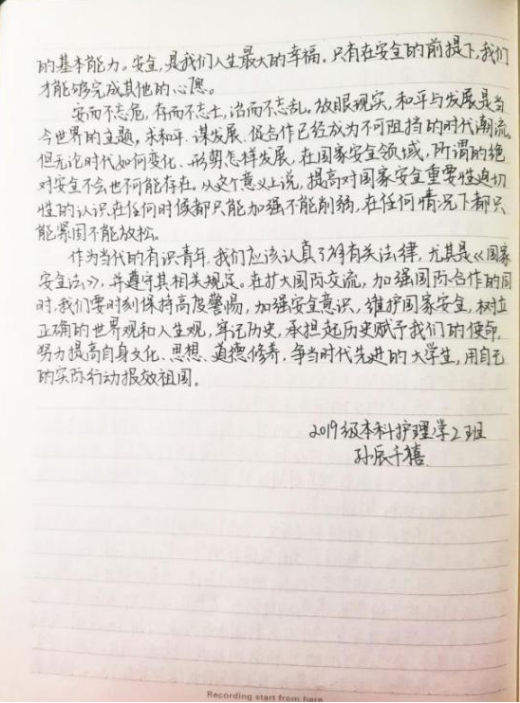 的基本能力。安全,是我们人生最大的幸福。只有在安全的前提下,我们
才能够完成其他的心愿。
安而不忘危,存而不忘亡,治而不忘乱,放眼现实,和平与发展是当
今世界的主题,求和平、谋发展、促合作已经成为不可阻挡的时代潮流,
但无论时代如何变化、形势怎样发展,在国家安全领域,所谓的绝
对安全不会也不可能存在。从这个意义上说,提高对国家安全重要性迫切
性的认识在任何时候都只能加强不能削弱,在任何情况下都只
能紧固不能放松。
作为当代的有识青年,我们应该认真了解有关法律,尤其是《国家
安全法》,并遵守其相关规定。在扩大国际交流,加强国际合作的同
时,我们要时刻保持高度警惕,加强安全意识,维护国家安全,树立
正确的世界观和人生观,牢记历史,承担起历史赋予我们的使命,
努力提高自身文化、思想、道德修养,争当时代先进的大学生,用自己
的实际行动报效祖国。
2019级本科护理学2班
孙辰千禧
Recording start from here